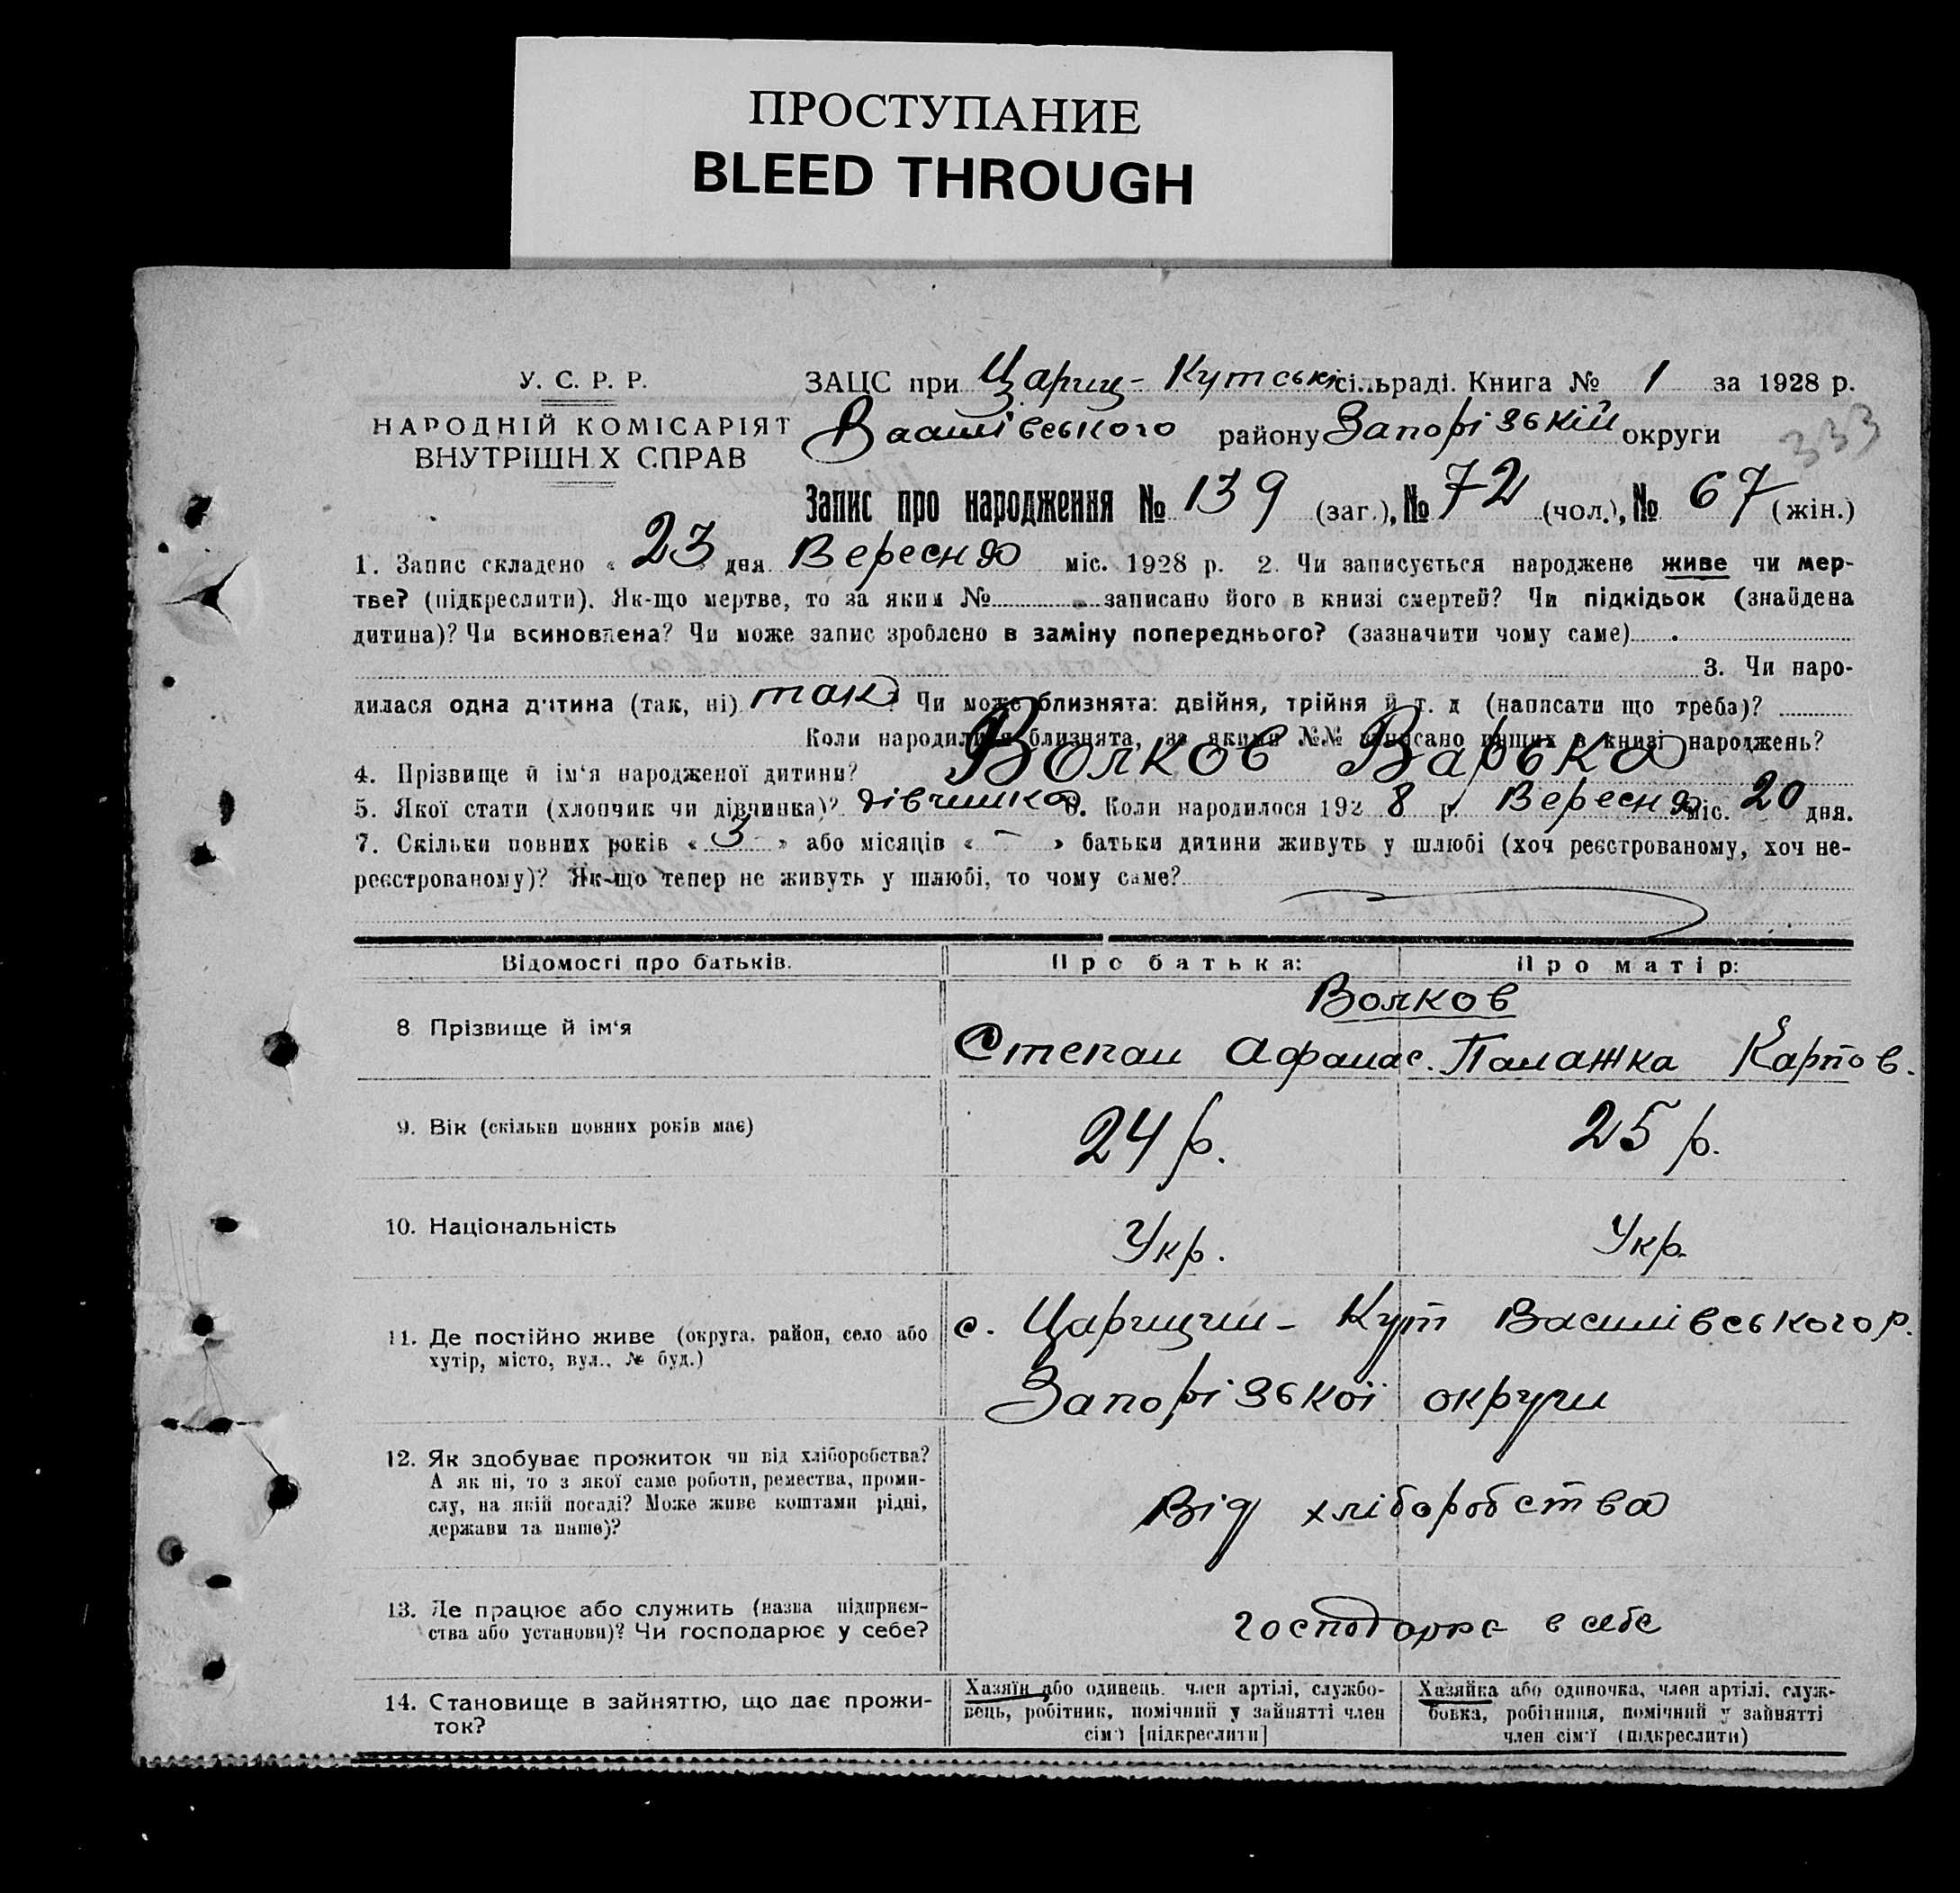 ПРОСТУПАНИЕ
BLEED THROUGH
У. С. Р. Р.
НАРОДНІЙ КОМІСАРІЯТ
ВНУТРІШН Х СПРАВ
ЗАЦС при Цариц-Кутські сільраді. Книга № 1 за 1928 р.
Василівського району Запорізькій округи
333
Запис про народження № 139 (заг.), № 72 (чол.), № 67 (жін.)
1. Запис складено « 23 » дня Вересня міс. 1928 р. 2. Чи записується народжене живе чи мер-
тве? (підкреслити). Як-що мертве, то за яким № записано його в книзі смертей? Чи підкідьок (знайдена
дитина)? Чи всиновлена? Чи може запис зроблено в заміну попереднього? (зазначити чому саме)
3. Чи наро-
дилася одна дитина (так, ні) так Чи може близнята: двійня, трійня й т. д (написати що треба)?
Коли народилися близнята, за якими №№ записано инших в книзі народжень?
4. Прізвище й ім'я народженої дитини? Волков Варька
5. Якої стати (хлопчик чи дівчинка)? дівчинка 6. Коли народилося 192 8 р. Вересня міс. 20 дня.
7. Скільки повних років « 3 » або місяців « - » батьки дитини живуть у шлюбі (хоч реєстрованому, хоч не-
реєстрованому)? Як-що тепер не живуть у шлюбі, то чому саме?
Відомості про батьків.
Про батька:
Про матір:
8 Прізвище й ім'я
Волков
Степан Афанас.
Палажка Карпов.
9. Вік (скільки повних років має)
24 р.
25 р.
10. Національність
Укр.
Укр.
11. Де постійно живе (округа, район, село або
хутір, місто, вул., № буд.)
с. Царицин-Кут Василівського р.
Запорізької округи
12. Як здобуває прожиток чи від хліборобства?
А як ні, то з якої саме роботи, ремества, проми-
слу, на якій посаді? Може живе коштами рідні,
держави та инше)?
Від хліборобства
13. Де працює або служить (назва підприєм-
ства або установи)? Чи господарює у себе?
господарює в себе
14. Становище в зайняттю, що дає прожи-
ток?
Хазяїн або одинець, член артілі, службо-
вець, робітник, помічний у зайнятті член
сім'ї [підкреслити]
Хазяйка або одиночка, член артілі, служ-
бовка, робітниця, помічний у зайнятті
член сім'ї (підкреслити)